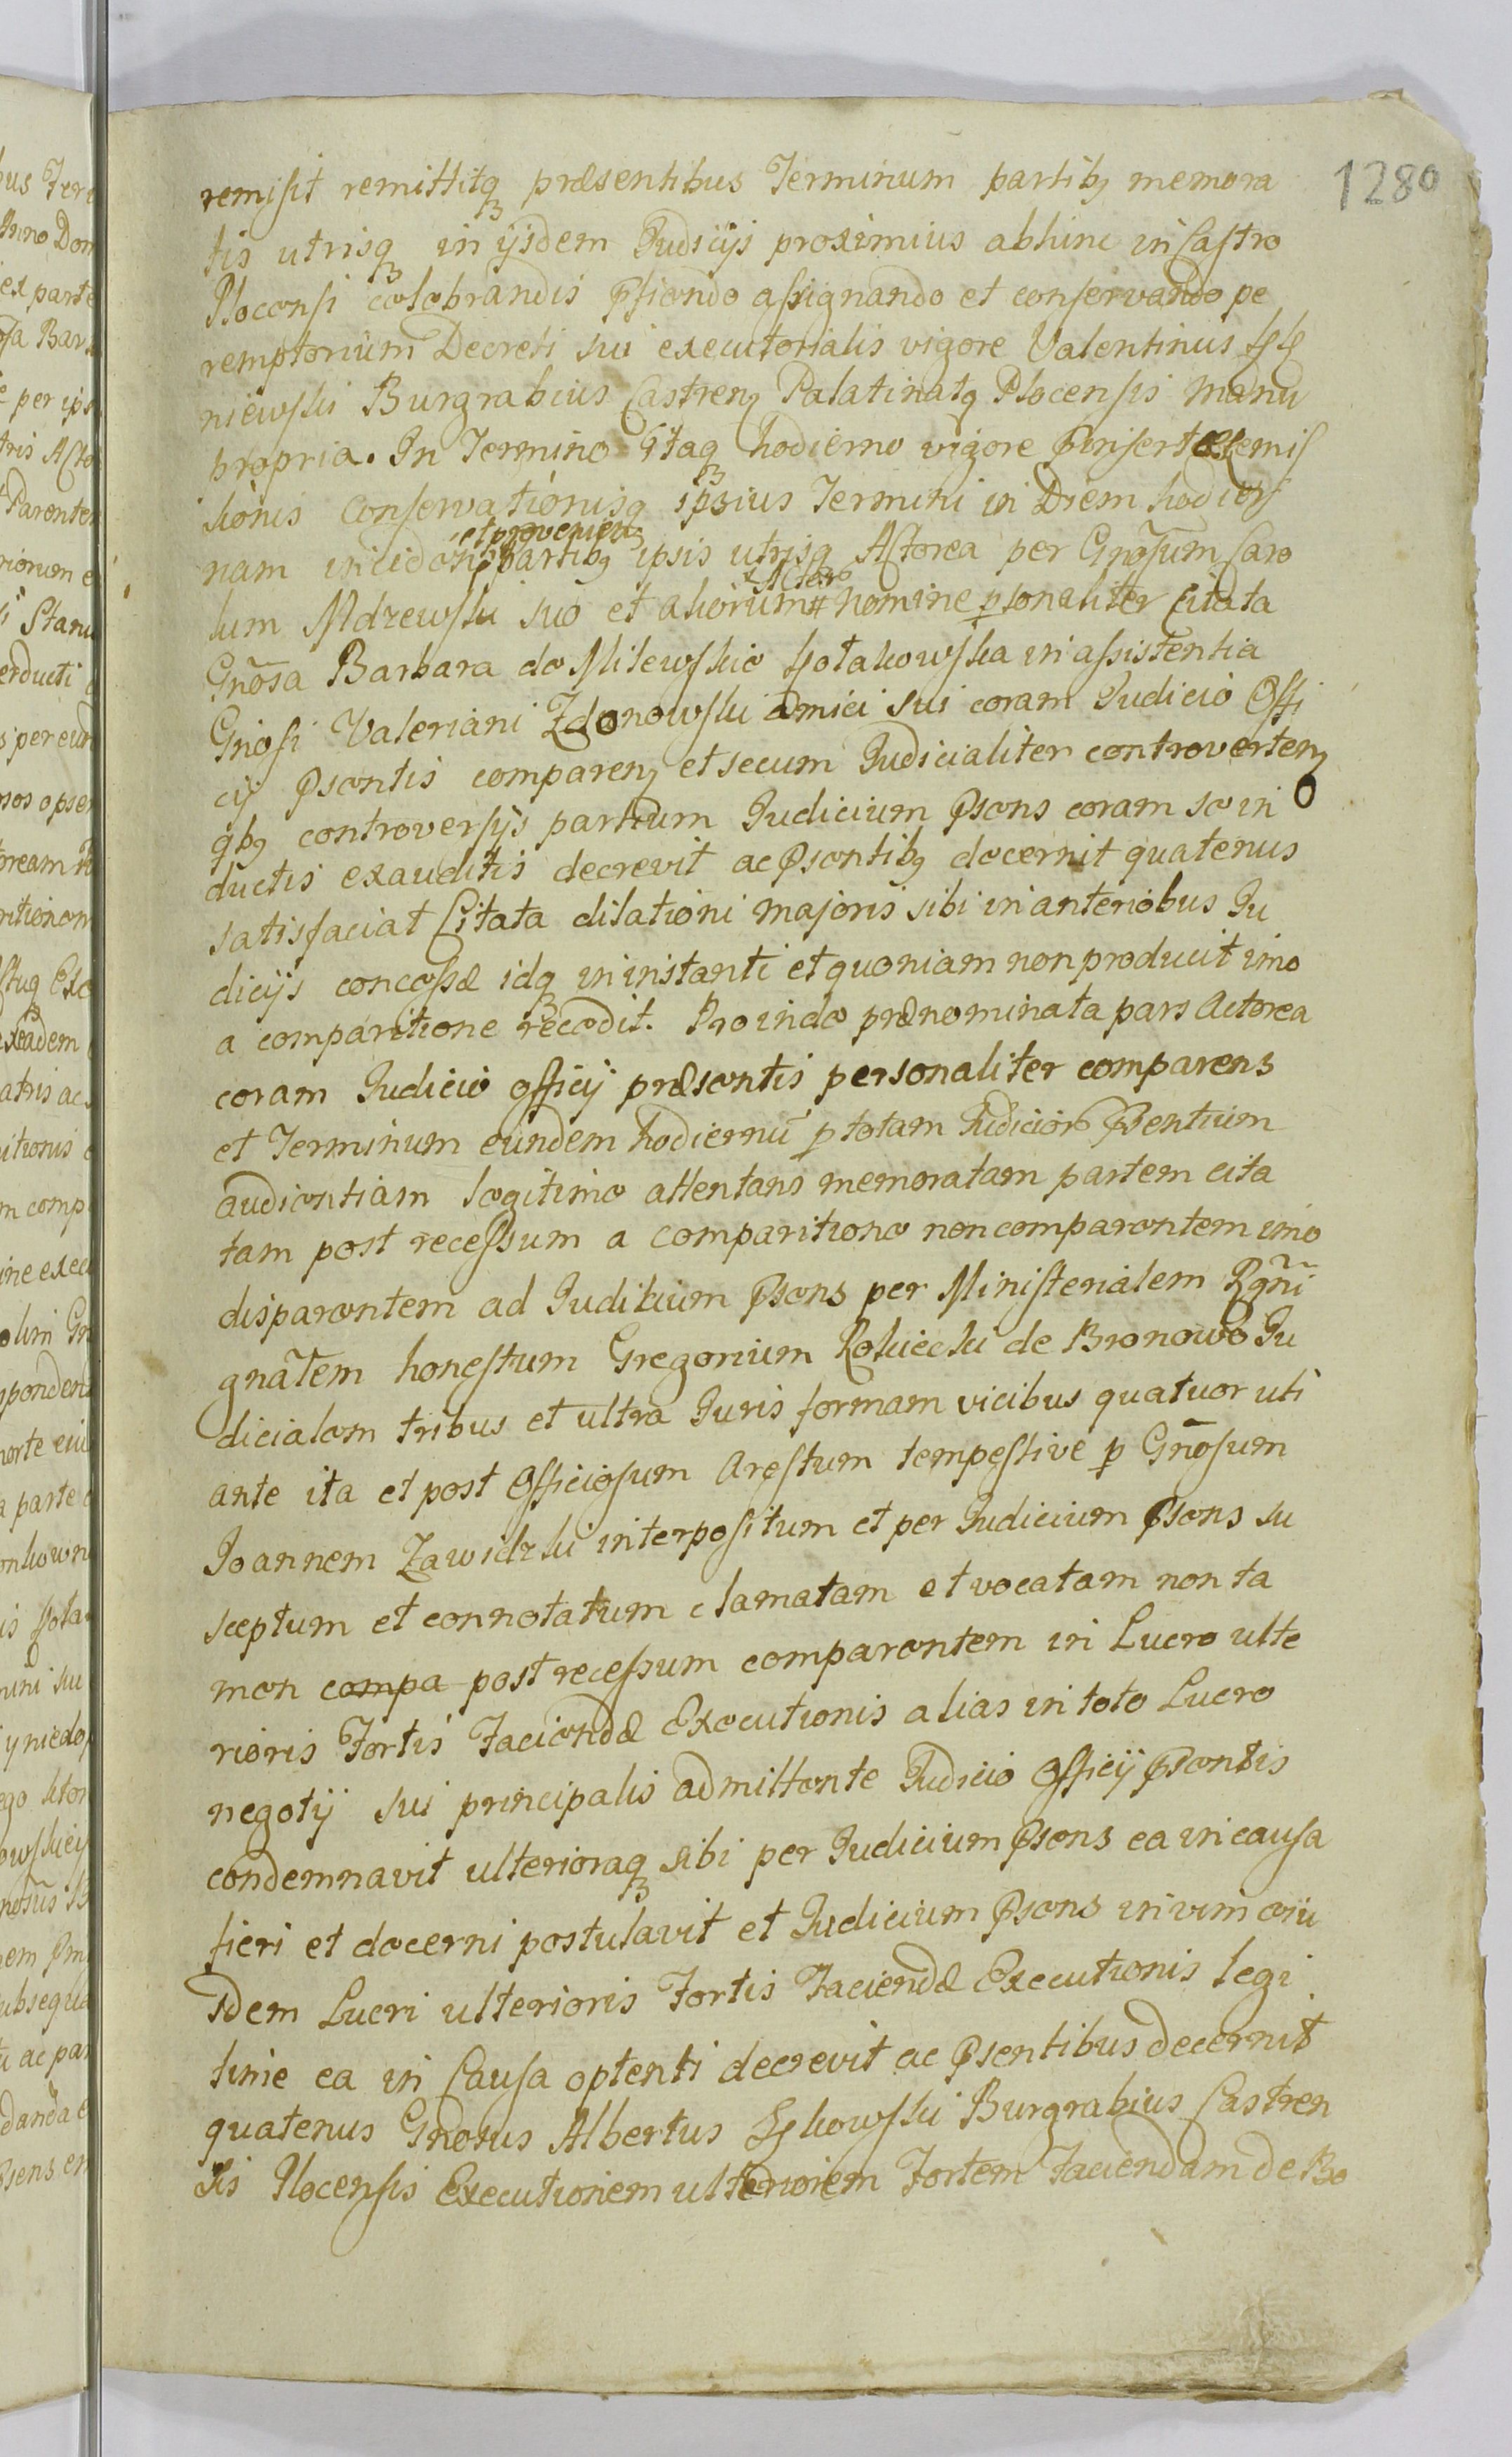 1280
remisit remittitq₃ præsentibus Terminum partibꝫ memora
tis utrisq₃ in ijsdem Judicijs proximius abhinc in Castro
Plocensi celebrandis p̃figendo assignando et conservando pe
remptorium Decreti sui executorialis vigore Valentinus
niewski Burgrabius Castrenꝫ Palatinatꝫ Plocensis manu
propria. In Termino Itaq₃ hodierno vigore p̃inserti Remis
sionis conservationisq₃ ipsius Termini in Diem hodier
et provenienꝫ
nam incidenꝫ partibꝫ ipsis utrisq₃ Actorea per Gnõsum Caro
Actor
lum Mdzewski suo et aliorum # nomine p̱sonaliter Citata
Gnõsa Barbara de Milewskie Kotakowska in assistentia
Gnosi Valeriani Zdonowski amici sui coram Judicio Offi
cij p̃sentis comparenꝫ et secum Judicialiter controvertenꝫ
qbꝫ controversijs partium Judicium p̃sens coram se in
ductis exauditis decrevit ac p̃sentibꝫ decernit quatenus
satisfaciat Citata dilationi majoris sibi in anteriobus Ju
dicijs concessæ idq₃ in instanti et quoniam non producit imo
a comparitione recedit. Proinde prænominata pars Actorea
coram Judicio officij præsentis personaliter comparens
et Terminum eundem hodiernũ p̱ totam Judicior p̃sentium
audientiam legitime attentans memoratam partem cita
tam post recessum a comparitione non comparentem imo
disparentem ad Judicium p̃sens per Ministerialem Rgñi
gnãlem honestum Gregorium Rokiecki de Bronowo Ju
dicialem tribus et ultra Juris formam vicibus quatuor uti
ante ita et post Officiosum Arestum tempestive p̱ Gnõsum
Joannem Zawidzki interpositum et per Judicium p̃sens su
sceptum et connotatum clamatam et vocatam non ta
men compa post recessum comparentem in Lucro ulte
rioris Fortis Faciendæ Executionis alias in toto Lucro
negotij sui principalis admittente Judicio Officij p̃sentis
condemnavit ulterioraq₃ sibi per Judicium p̃sens ea in causa
fieri et decerni postulavit et Judicium p̃sens in vim eiu
sdem Lucri ulterioris Fortis Faciendæ Executionis legi
time ea in Causa optenti decrevit ac p̃sentibus decernit
quatenus Gnosus Albertus Burgrabius Castren
sis Plocensis Executionem ulteriorem Fortem Faciendam de Bo